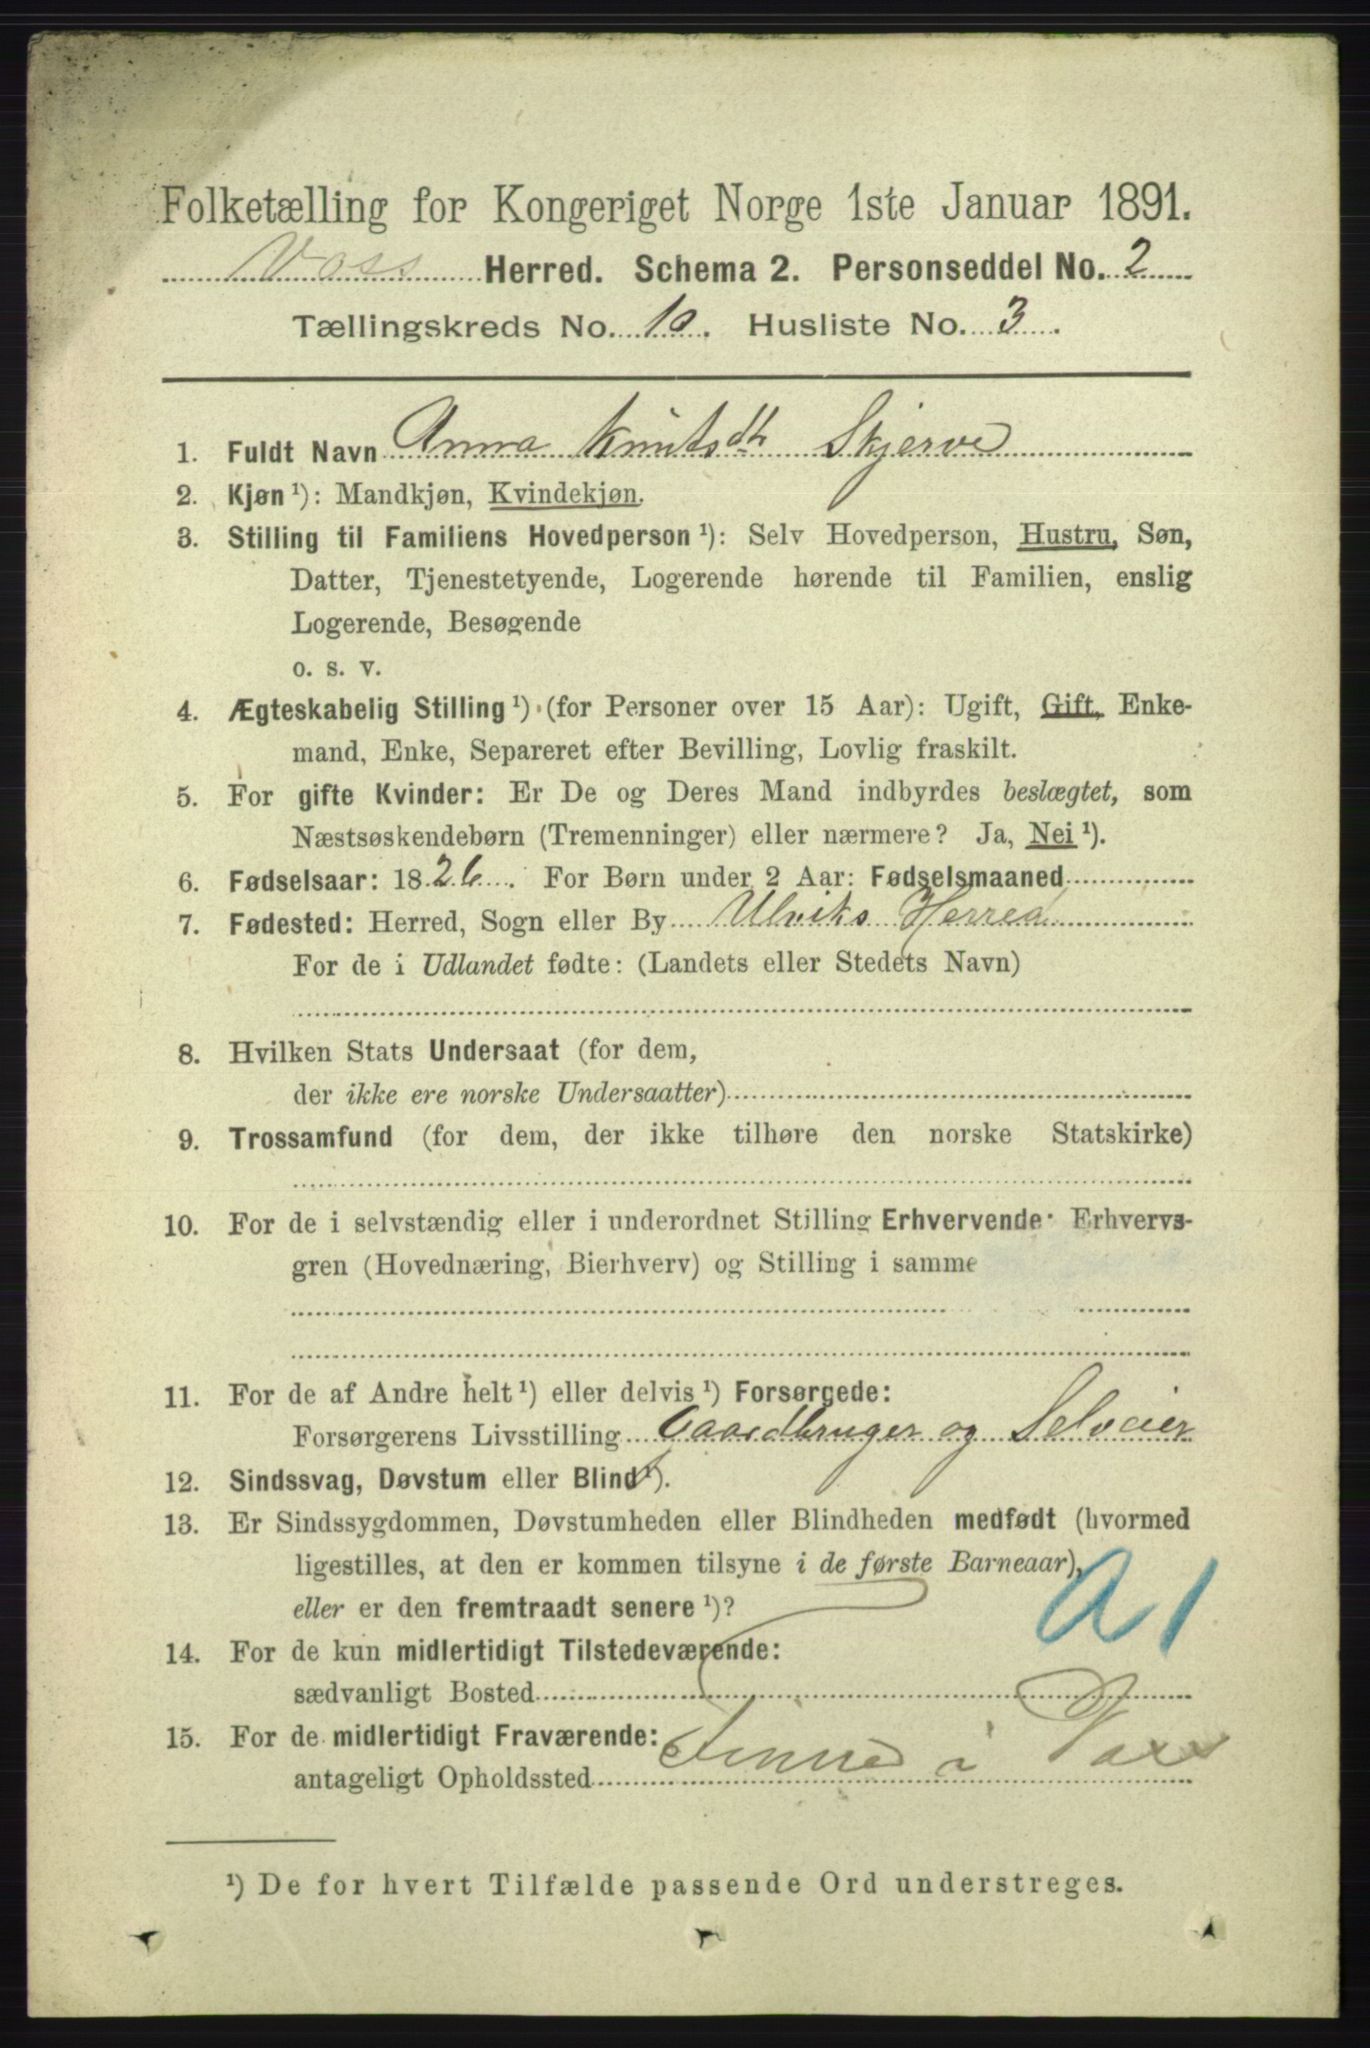 Folketælling for Kongeriget Norge 1ste Januar 1891.
Voss Herred. Schema 2. Personseddel No. 2
Tællingskreds No. 10. Husliste No. 3.
1. Fuldt Navn Anna Knutsdtr Skjerve
2. Kjøn¹): Mandkjøn, Kvindekjøn.
3. Stilling til Familiens Hovedperson¹): Selv Hovedperson, Hustru, Søn,
Datter, Tjenestetyende, Logerende hørende til Familien, enslig
Logerende, Besøgende
o. s. v.
4. Ægteskabelig Stilling¹) (for Personer over 15 Aar): Ugift, Gift, Enke-
mand, Enke, Separeret efter Bevilling, Lovlig fraskilt.
5. For gifte Kvinder: Er De og Deres Mand indbyrdes beslægtet, som
Næstsøskendebørn (Tremenninger) eller nærmere? Ja, Nei¹).
6. Fødselsaar: 1826. For Børn under 2 Aar: Fødselsmaaned
7. Fødested: Herred, Sogn eller By Ulviks Herred
For de i Udlandet fødte: (Landets eller Stedets Navn)
8. Hvilken Stats Undersaat (for dem,
der ikke ere norske Undersaatter)
9. Trossamfund (for dem, der ikke tilhøre den norske Statskirke)
10. For de i selvstændig eller i underordnet Stilling Erhvervende: Erhvervs-
gren (Hovednæring, Bierhverv) og Stilling i samme
11. For de af Andre helt¹) eller delvis¹) Forsørgede:
Forsørgerens Livsstilling Gaardbruger og Selveier
12. Sindssvag, Døvstum eller Blind¹).
13. Er Sindssygdommen, Døvstumheden eller Blindheden medfødt (hvormed
ligestilles, at den er kommen tilsyne i de første Barneaar),
eller er den fremtraadt senere¹)?
A 1
14. For de kun midlertidigt Tilstedeværende:
sædvanligt Bosted
15. For de midlertidigt Fraværende:
antageligt Opholdssted Finne i Voss
¹) De for hvert Tilfælde passende Ord understreges.